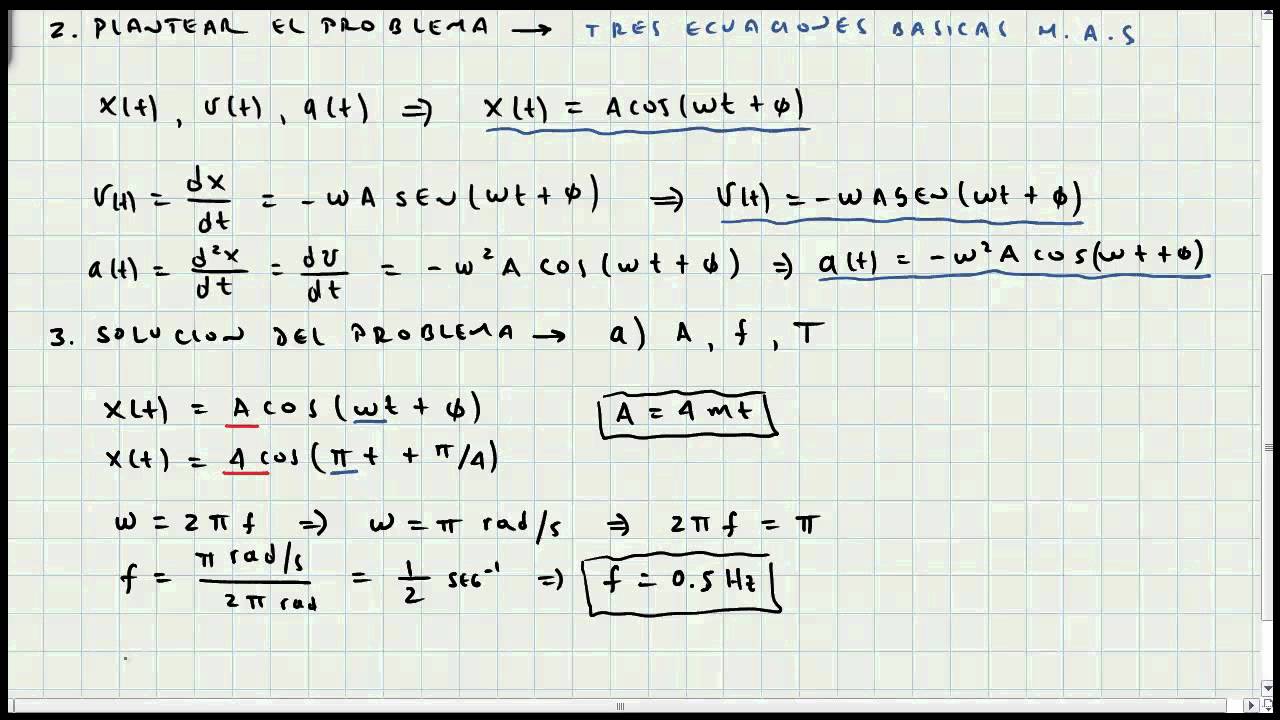 2. PLANTEAR EL PROBLEMA → TRES ECUACIONES BASICAS M.A.S
x(t), v(t), a(t) ⇒ x(t) = A cos(ωt + φ)
v(t) = dx/dt = -ω A SEN(ωt + φ) ⇒ v(t) = -ω A SEN(ωt + φ)
a(t) = d²x/dt = dv/dt = -ω² A cos(ωt + φ) ⇒ a(t) = -ω² A cos(ωt + φ)
3. SOLUCION DEL PROBLEMA → a) A, f, T
x(t) = A cos(ωt + φ) A = 4 mt
x(t) = 4 cos(πt + π/4)
ω = 2πf ⇒ ω = π rad/s ⇒ 2πf = π
f = π rad/s / 2π rad = 1/2 SEG⁻¹ ⇒ f = 0.5 Hz